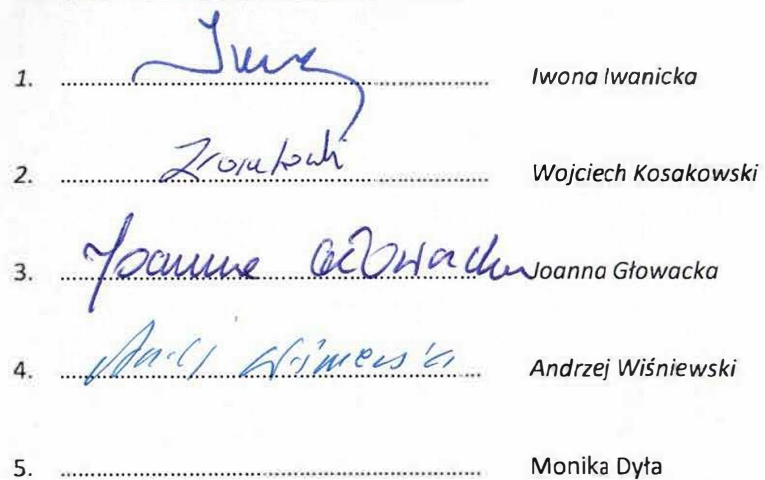 1. Iwona Iwanicka
2. Wojciech Kosakowski
3. Joanna Głowacka Joanna Głowacka
4. Wiśniewski Andrzej Wiśniewski
5. Monika Dyła